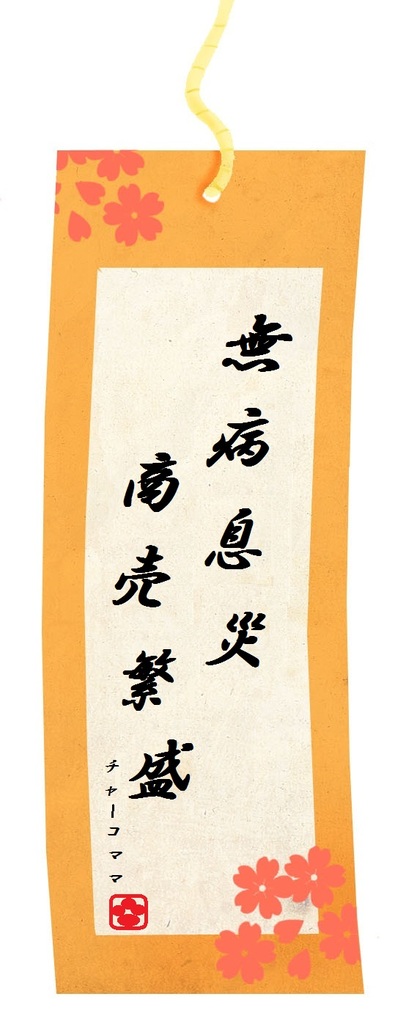 無病息災
商売繁盛
チャーコママ